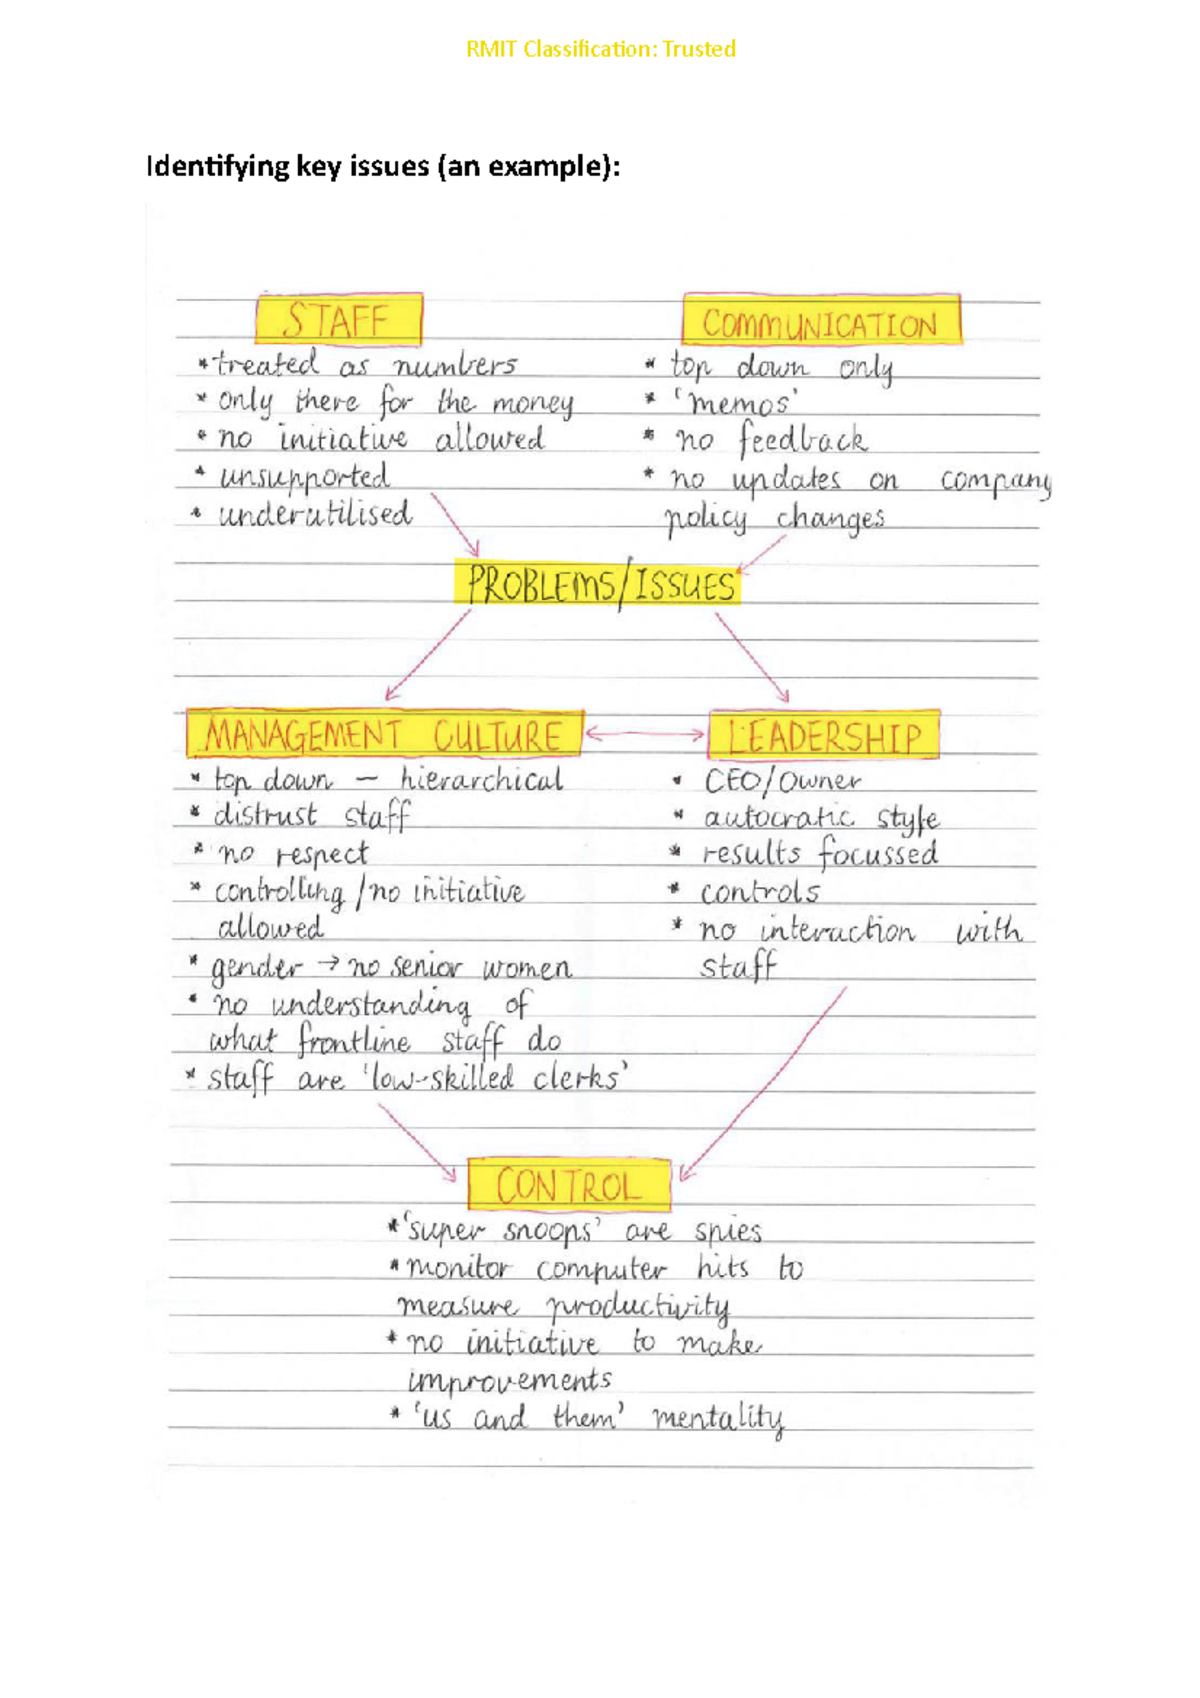 RMIT Classification: Trusted
Identifying key issues (an example):
STAFF
* treated as numbers
* only there for the money
* no initiative allowed
* unsupported
* underutilised
COMMUNICATION
* top down only
* 'memos'
* no feedback
* no updates on company
policy changes
PROBLEMS/ISSUES
MANAGEMENT CULTURE
* top down — hierarchical
* distrust staff
* no respect
* controlling/no initiative
allowed
* gender → no senior women
* no understanding of
what frontline staff do
* staff are 'low-skilled clerks'
LEADERSHIP
* CEO/Owner
* autocratic style
* results focussed
* controls
* no interaction with
staff
CONTROL
* 'super snoops' are spies
* monitor computer hits to
measure productivity
* no initiative to make
improvements
* 'us and them' mentality